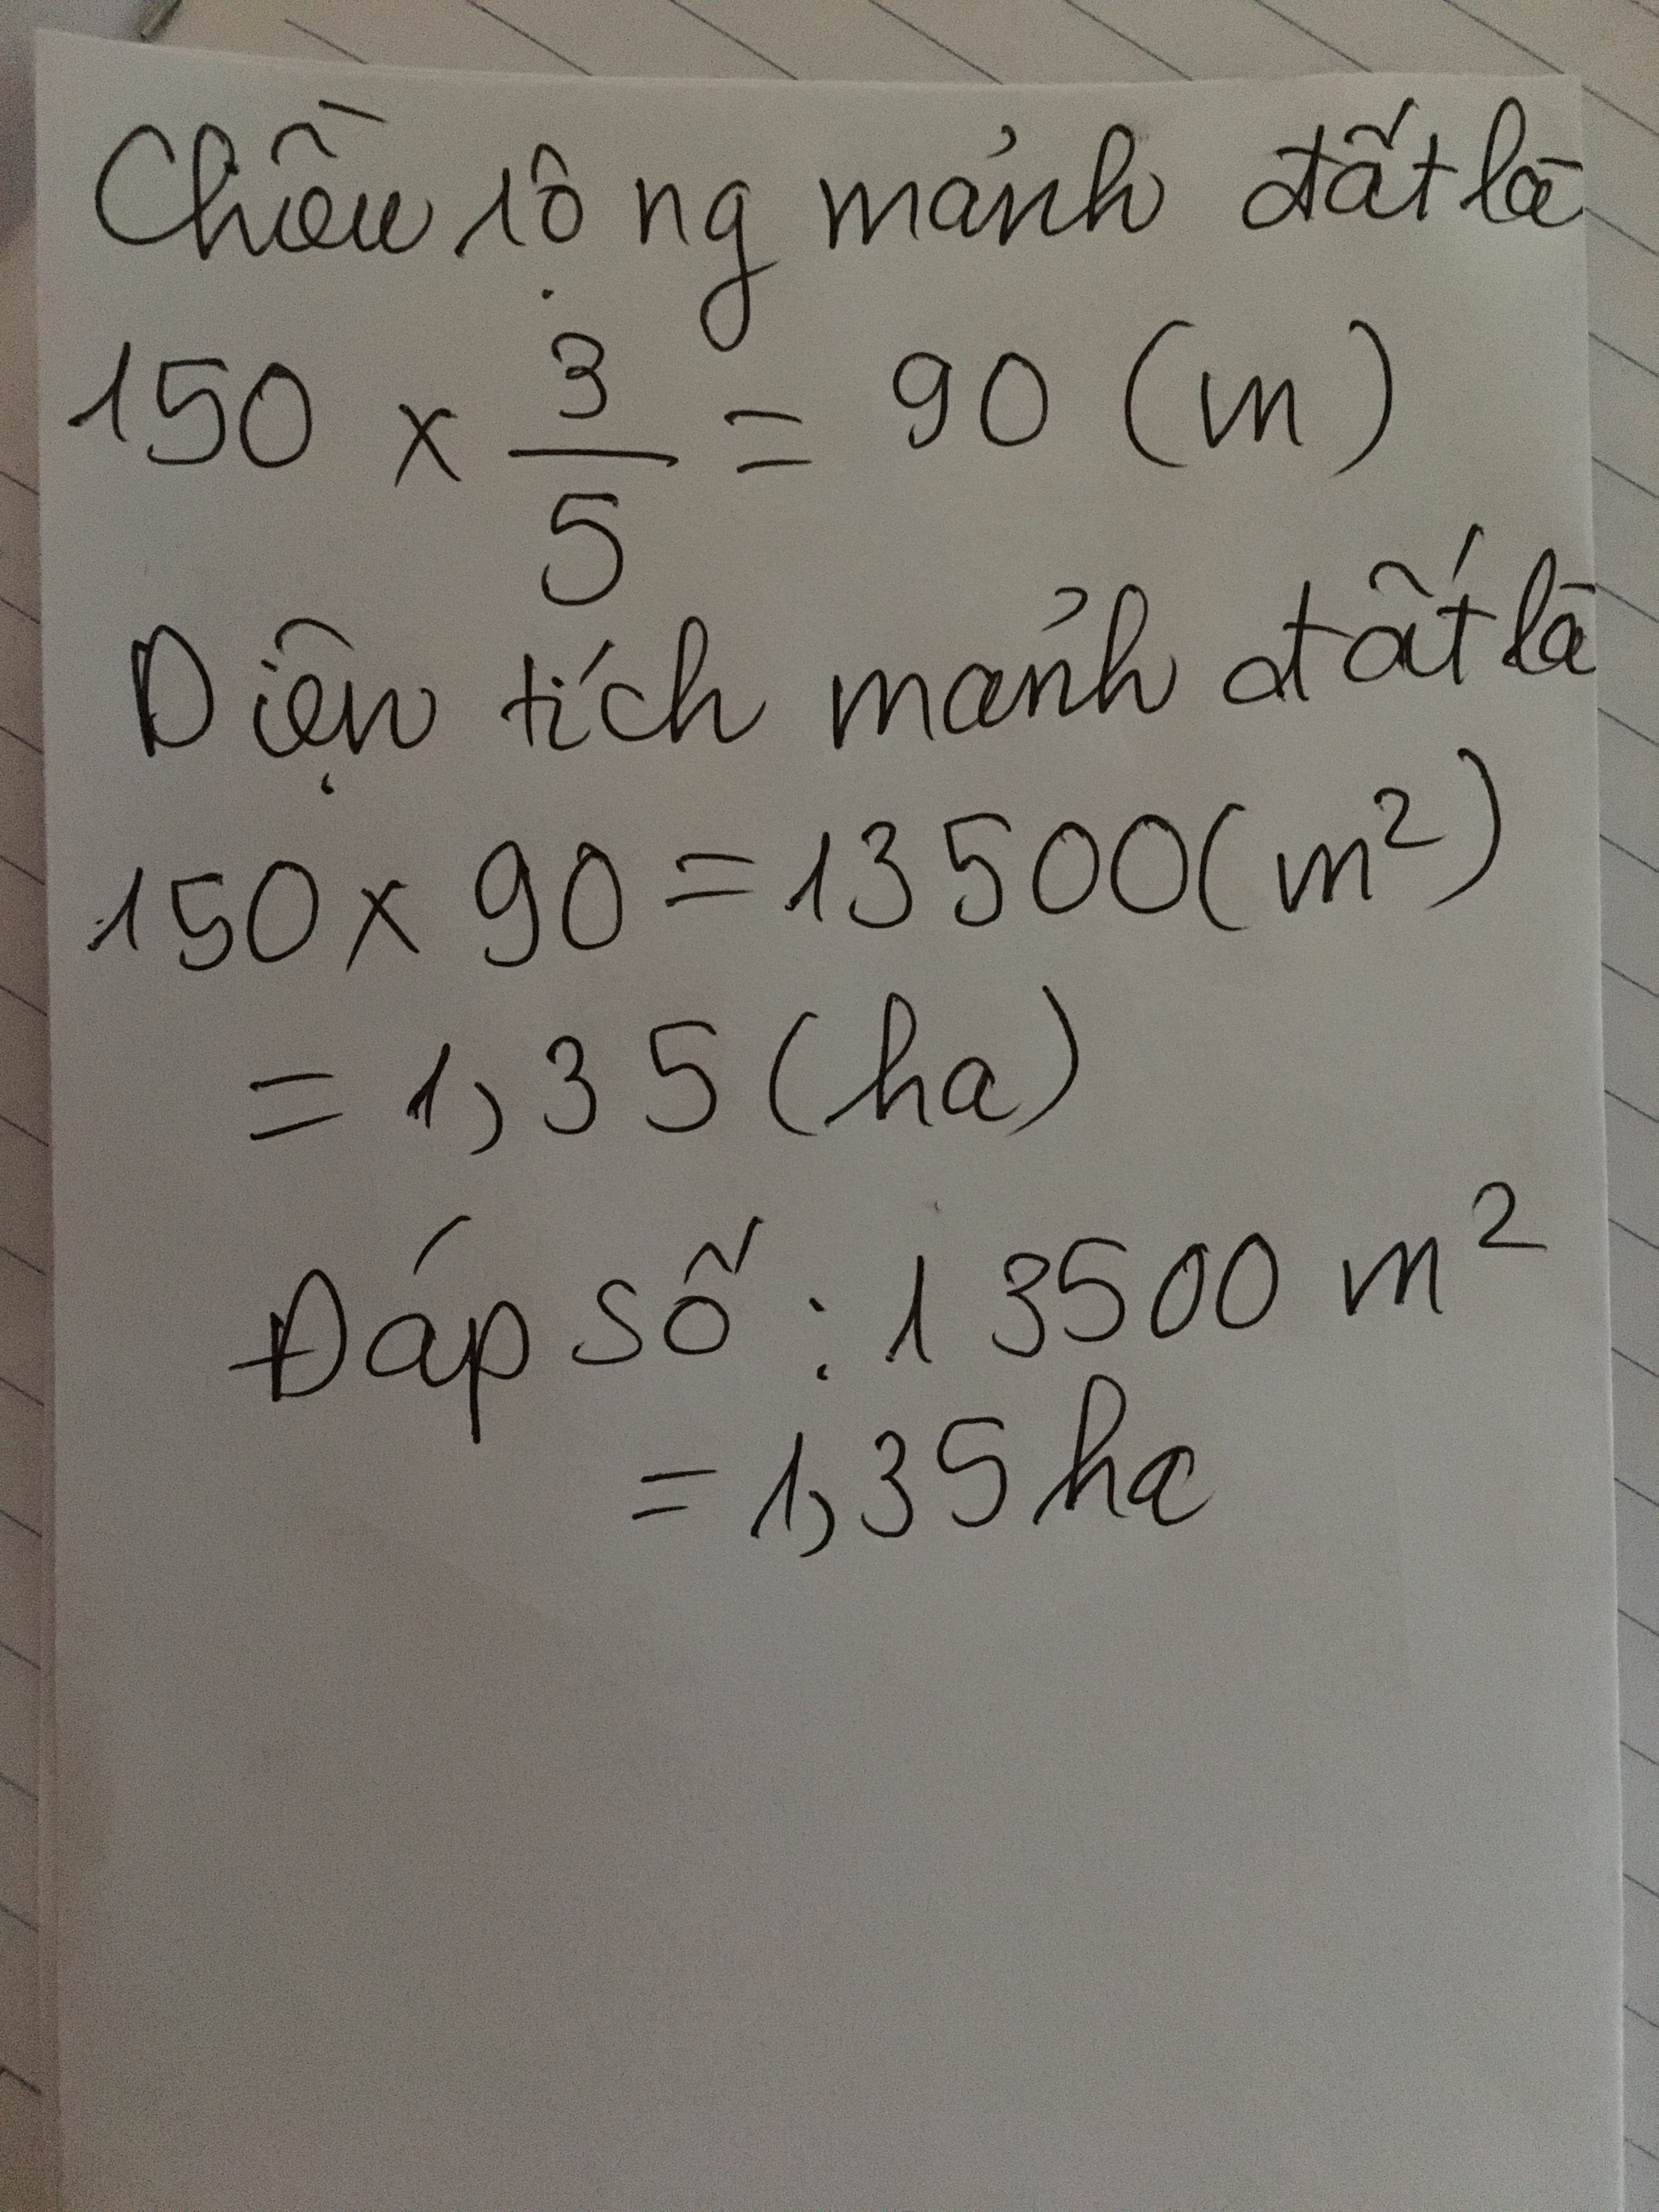 Chiều rộng mảnh đất là
150 x 3/5 = 90 (m)
Diện tích mảnh đất là
150 x 90 = 13500 (m²)
= 1,35 (ha)
Đáp số : 13500 m²
= 1,35 ha